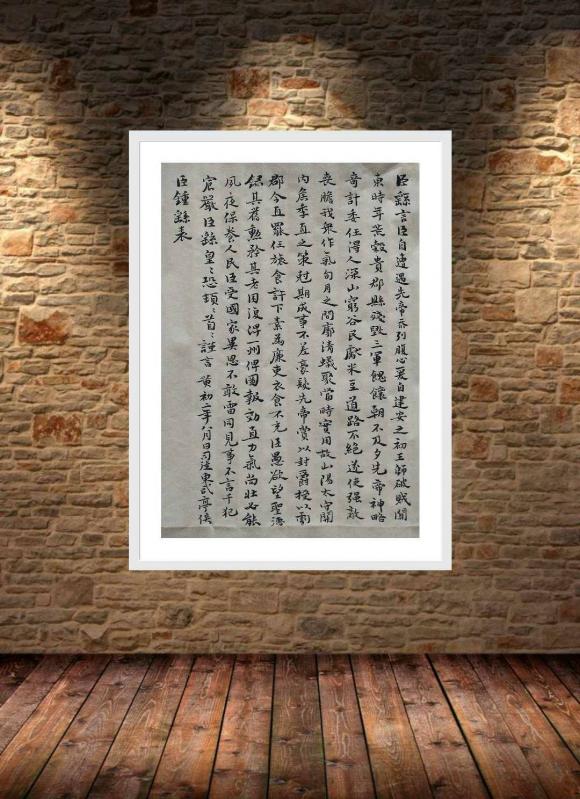 臣繇言臣自遭遇先帝忝列腹心爰自建安之初王師破賊關
東時年荒穀貴郡縣殘毀三軍餽饟朝不及夕先帝神略
奇計委任得人深山窮谷民獻米豆道路不絕遂使強敵
喪膽我眾作氣旬月之間廓清蟻聚當時實用故山陽太守關
內侯季直之策尅期成事不差豪髮先帝賞以封爵授以劇
郡今直罷任旅食許下素為廉吏衣食不充臣愚欲望聖德
錄其舊勳矜其老困復俾一州俾圖報效直力氣尚壯必能
夙夜保養人民臣受國家異恩不敢雷同見事不言干犯
宸嚴臣繇皇〻恐頓〻首〻謹言 黃初二年八月日司徒東武亭侯
臣鍾繇表